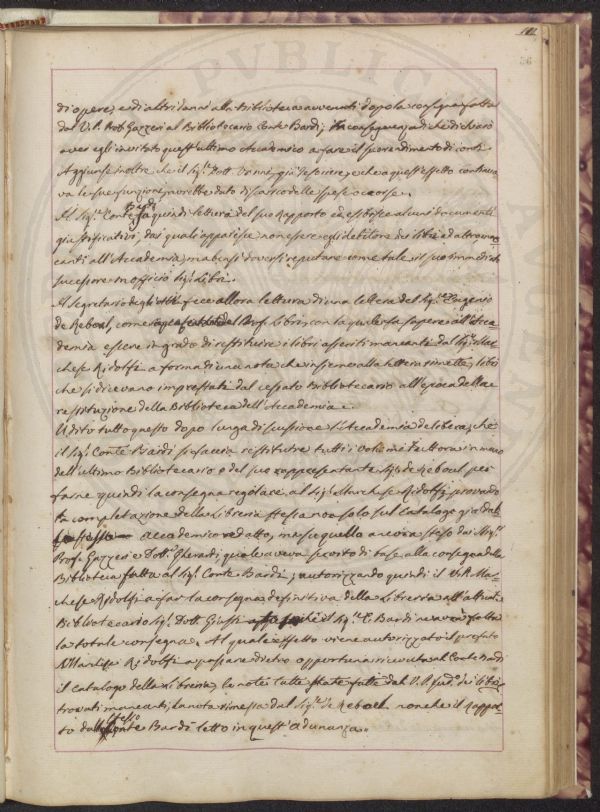 di opere, e di altri danni alla Biblioteca avvenuti dopo la consegna fatta
dal V. P. Prof. Gazzeri al Bibliotecario Conte Bardi; in conseguenza di che dichiarò
aver egli invitato quest'ultimo Accademico a fare il suo rendimento di conti.
Aggiunse inoltre che il Sig.r Dott. Vanni, già Tesoriere, e che a quest'effetto continua-
va le sue funzioni, avrebbe dato discarico delle spese occorse.
Il Sig.r Conte Bardi fa quindi lettura del suo Rapporto ed esibisce alcuni documenti
giustificativi, dai quali apparisce non essere egli debitore dei libri ed altro man-
canti all'Accademia, ma bensì doversi reputare come tale il suo immediato
successore in officio Sig.r Libri.
Il Segretario degli Atti fece allora lettura di una lettera del Sig.r Eugenio
de Reboul, come rappresentante del Prof. Libri, con la quale fa sapere all'Acca-
demia essere in grado di restituire i libri asseriti mancanti dal Sig.r Mar-
chese Ridolfi a forma di una nota che insieme alla lettera rimette, libri
che si dicevano imprestati dal cessato Bibliotecario all'epoca della
restituzione della Biblioteca dell'Accademia.
Udito tutto questo dopo lunga discussione l'Accademia delibera, che
il Sig.r Conte Bardi si faccia restituire tutti i Volumi tuttora in mano
dell'ultimo Bibliotecario o del suo rappresentante Sig.r de Reboul per
farne quindi la consegna regolare al Sig.r Marchese Ridolfi, provando
la completazione della Libreria stessa non solo sul Catalogo già dal
accademico redatto, ma su quello ancora steso dai Sig.ri
Prof. Gazzeri e Dott. Gherardi quale aveva servito di base alla consegna della
Biblioteca fatta al Sig.r Conte Bardi; autorizzando quindi il V. P. Mar-
chese Ridolfi a far la consegna definitiva della Libreria all'attuale
Bibliotecario Sig.r Dott. Giusti il Sig.r C. Bardi ne avrà fatta
la totale consegna. Al quale effetto viene autorizzato il prefato
Marchese Ridolfi a passare dietro opportuna ricevuta al Conte Bardi
il Catalogo della Libreria, le note state fatte dal V. P. sud.o dei libri
trovati mancanti, la nota rimessa dal Sig.r de Reboul nonchè il Rappor-
to dallo stesso Conte Bardi letto in quest'Adunanza.